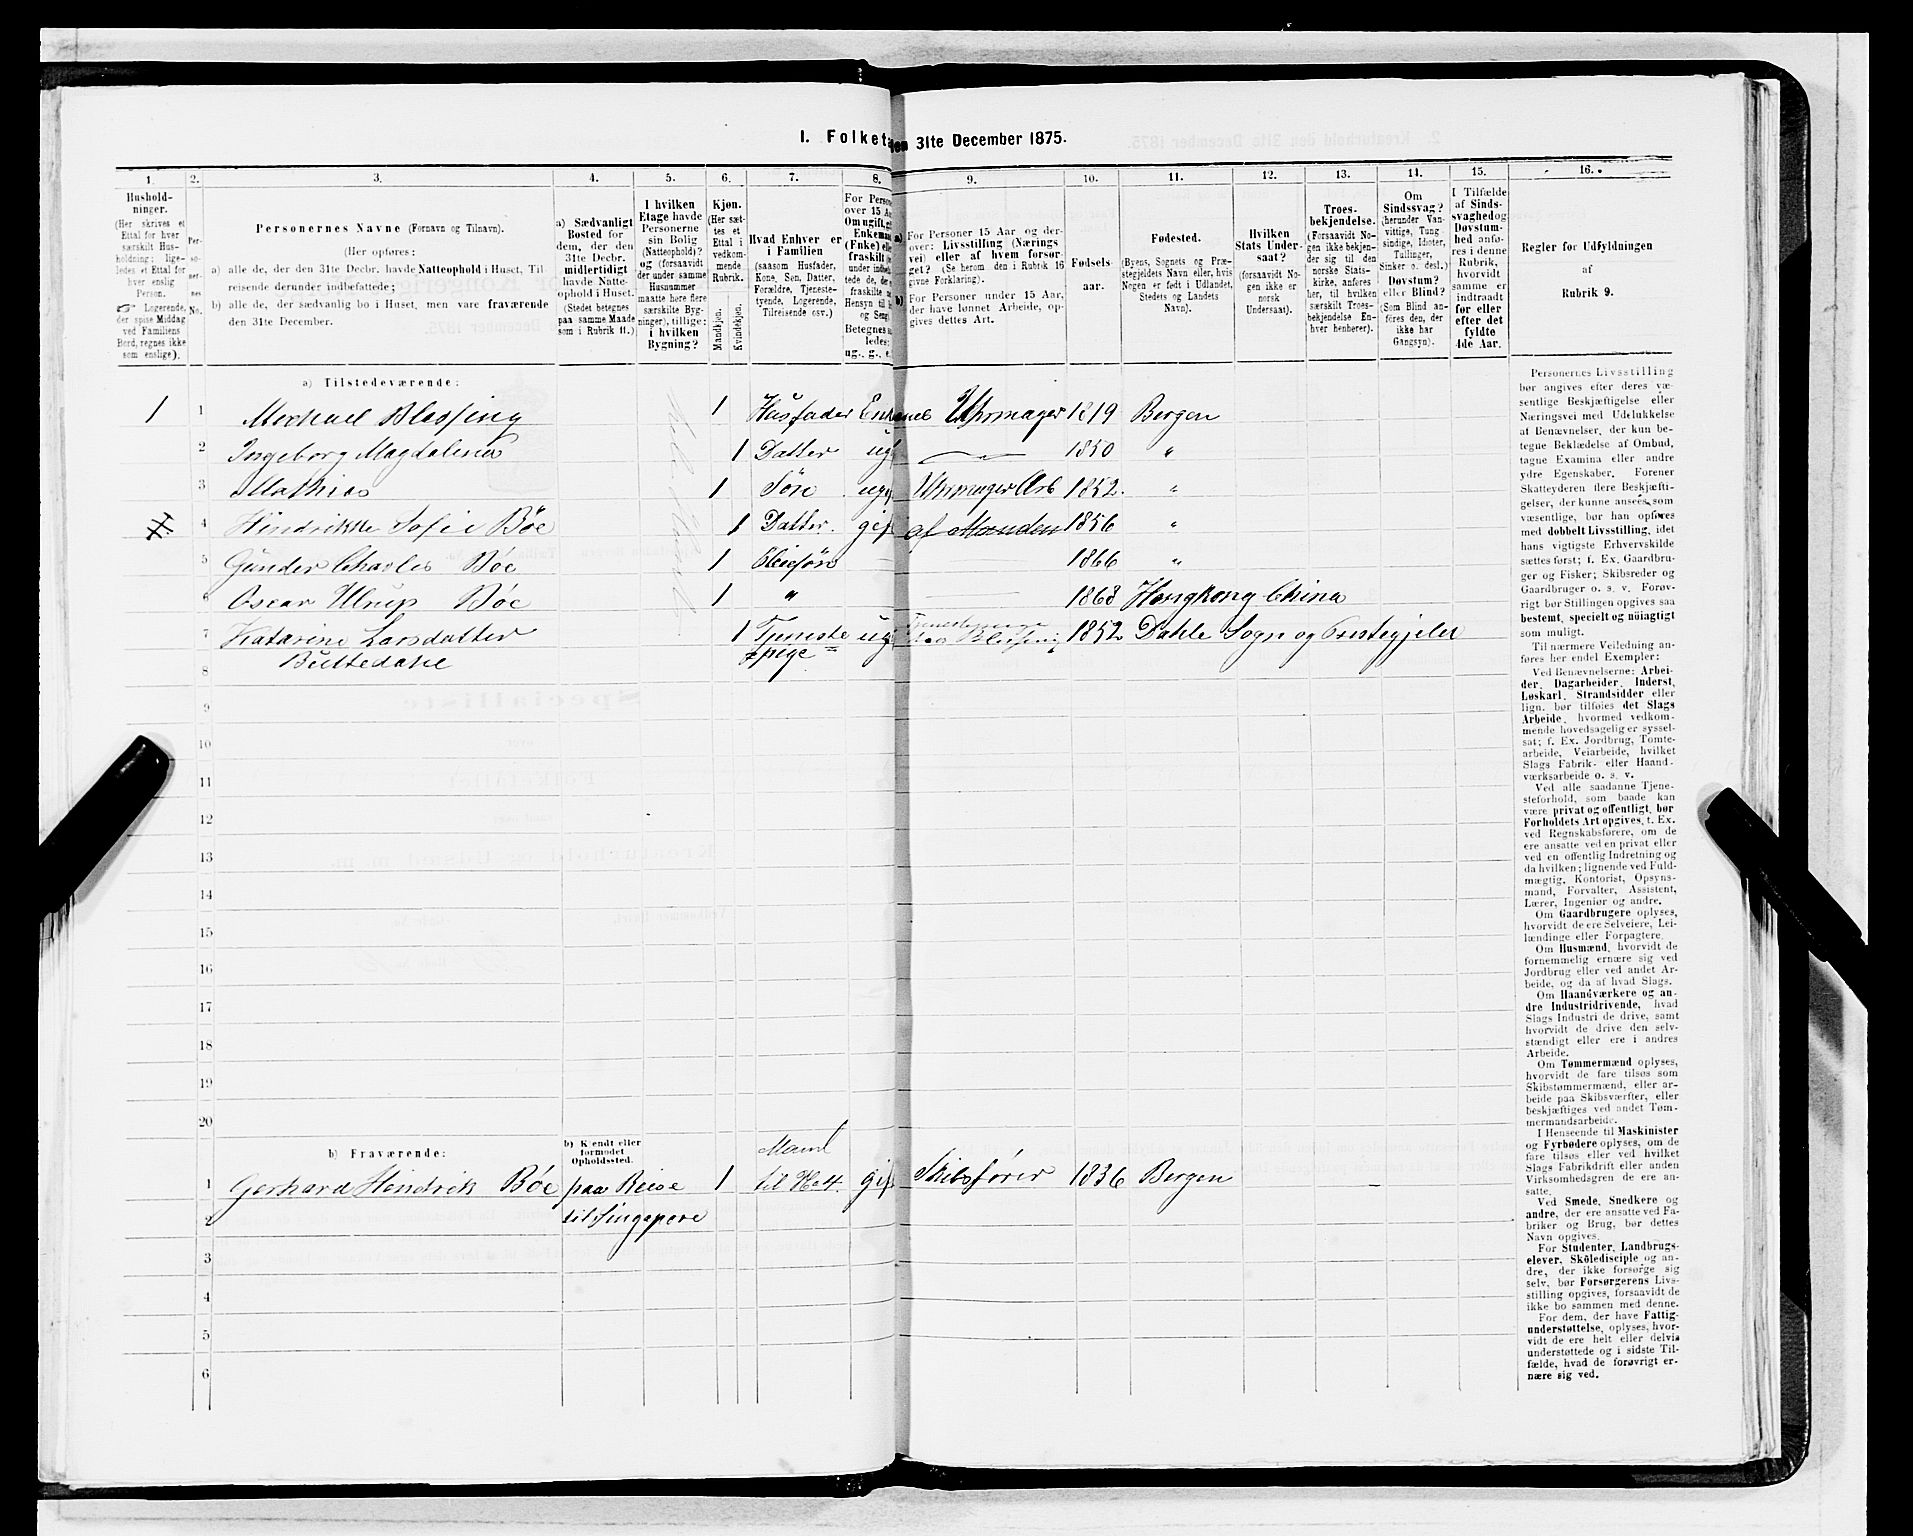 1. Folketæ
den 31te December 1875.
1. 2. 3. 4. 5. 6. 7. 8. 9. 10. 11. 12. 13. 14. 15. 16.
Hushold-
ninger.
(Her skrives et
Ettal for hver
særskilt Hus-
holdning; lige-
ledes et Ettal for
hver enslig
Person.
☞ Logerende,
der spise Middag
ved Familiens
Bord, regnes ikke
som enslige).
Per-
so-
ner-
nes
No.
Personernes Navne (Fornavn og Tilnavn).
(Her opføres:
a) alle de, der den 31te Decbr. havde Natteophold i Huset, Til-
reisende derunder indbefattede;
b) alle de, der sædvanlig bo i Huset, men vare fraværende
den 31te December.
a) Sædvanligt
Bosted for
dem, der den
31te Decbr.
midlertidigt
havde Natte-
ophold i Huset.
(Stedet betegnes
paa samme Maade
som i Rubrik 11.)
I hvilken
Etage havde
Personerne
sin Bolig
(Natteophold)?
og (forsaavidt
der under samme
Husnummer
maatte høre flere
særskilte Byg-
ninger), tillige:
i hvilken
Bygning?
Kjøn.
(Her sæt-
tes et
Ettal i
vedkom-
mende
Rubrik.
Mandkjøn.
Kvindekjøn.
Hvad Enhver er
i Familien
(saasom Husfader,
Kone, Søn, Datter,
Forældre, Tjeneste-
tyende, Logerende,
Tilreisende osv.)
For Person
over 15 Aa
Om ugift, gi
Enkeman
(Enke) elle
fraskilt
Betegnes
ledes:
ug., g., e.
a)
For Personer 15 Aar og der-
over: Livsstilling (Nærings
vei) eller af hvem forsør-
get? (Se herom den i Rubrik 16
givne Forklaring).
b)
For Personer under 15 Aar,
der have lønnet Arbeide, op-
gives dettes Art.
Fødsels-
aar.
Fødested.
(Byens, Sognets og Præ-
stegjeldets Navn eller, hvis
Nogen er født i Udlandet,
Stedets og Landets
Navn).
Hvilken
Stats Under-
saat?
(forsaavidt No-
gen ikke er
norsk
Undersaat).
Troes-
bekjendelse.
(Forsaavidt No-
gen ikke bekjen-
der sig til den
norske Stats-
kirke, anføres
her, til hvilken
særskilt Troes-
bekjendelse En-
hver henhører).
Om
Sindssvag?
(herunder Van-
vittige, Tung
sindige, Idioter,
Tullinger,
Sinker o. desl.)
Døvstum?
eller Blind?
(Som Blind an-
føres den, der
ikke har
Gangsyn).
I Tilfælde
af Sinds-
svaghed og
Døvstum-
hed anfø-
res i denne
Rubrik,
hvorvidt
samme er
indtraadt
før eller
efter det
fyldte
4de Aar.
Regler før Udfyldningen
af
Rubrik 9.
a) Tilstedeværende:
1 1 Michael Blessing 1 Husfader Enkem. Uhrmager 1819 Bergen
2 Ingeborg Magdalena 1 Datter ug. 1850 "
3 Mathias 1 Søn ug. Uhrmager Arb 1852. "
4 Hindrikke Sofie Bøe 1 Datter. gif af Manden 1856 "
5 Gunder Charles Bøe 1 Pleiesøn 1866 "
6 Oscar Ulrup Bøe 1 " 1868 Hongkong China
7 Katarine Larsdatter 1 Tjeneste ug. 1852 Dahle Sogn og Præstegjeld
8 pige
9
10
11
12
13
14
15
16
17
18
19
20
b) Fraværende:
b) Kjendt eller
formodet
Opholdssted.
Mand
1 Gerhard Hendrik Bøe paa Reise 1 til No 4. gif Skibsfører 1836 Bergen
2 til Singapore
3
4
5
6
Personernes Livsstilling
bør angives efter deres væ-
sentlige Beskjæftigelse eller
Næringsvei med Udelukkelse
af Benævnelser, der kun be-
tegne Beklædelse af Ombud,
tagne Examina eller andre
ydre Egenskaber. Forener
Skatteyderen flere Beskjæfti-
gelser, der kunne ansees som
væsentlige, bør han opføres
med dobbelt Livsstilling, idet
hans vigtigste Erhvervskilde
sættes først; f. Ex. Gaardbru-
ger og Fisker; Skibsreder og
Gaardbruger o. s. v. Forøv-
rigt bør Stillingen opgives saa
bestemt, specielt og nöiagtigt
som muligt.
Til nærmere Veiledning an-
føres her endel Exempler:
Ved Benævnelserne: Arbei-
der, Dagarbeider, Inderst,
Løskarl, Strandsidder eller
lign. bør tilføies det Slags
Arbeide, hvormed vedkom-
mende hovedsagelig er syssel-
sat; f. Ex. Jordbrug, Tomte-
arbeide, Veiarbeide, hvilket
Slags Fabrik- eller Haand-
værksarbeide o. s. v.
Ved alle saadanne Tjene-
steforhold, som baade kan
være privat og offentligt, bør
Forholdets Art opgives, t. Ex.
ved Regnskabsførere, om de
ere ansatte ved en privat eller
ved en offentlig Indretning og
da hvilken; lignende ved Fuld-
mægtig, Kontorist, Opsyns-
mand, Forvalter, Assistent,
Lærer, Ingeniør og andre.
Om Gaardbrugere oplyses,
hvorvidt de ere Selveiere, Lei-
lændinge eller Forpagtere.
Om Husmænd, hvorvidt de
fornemmelig ernære sig ved
Jordbrug eller ved andet Ar-
beide, og da af hvad Slags.
Om Haandværkere og an-
dre Industridrivende, hvad
Slags Industri de drive, samt
hvorvidt de drive den selv-
stændigt eller ere i andres
Arbeide.
Om Tømmermænd oplyses,
hvorvidt de fare tilsøs som
Skibstømmermænd, eller ar-
beide paa Skibsværfter, eller
beskjæftiges ved andet Tøm-
mermandsarbeide.
I Henseende til Maskinister
og Fyrbødere oplyses, om de
fare tilsøs eller ved hvilket
Slags Fabrikdrift eller anden
Virksomhedsgren de ere an-
satte.
Ved Smede, Snedkere og
andre, der ere ansatte ved Fa-
briker og Brug, bør dettes
Navn opgives.
For Studenter, Landbrugs-
elever, Skoledisciple og an-
dre, der ikke forsørge sig
selv, bør Forsørgerens Livs-
stilling opgives, forsaavidt de
ikke bo sammen med denne.
For dem, der have Fattig-
understøttelse, oplyses, hvor-
vidt de ere helt eller delvis
understøttede og i sidste Til-
fælde, hvad de forøvrigt er-
nære sig ved.